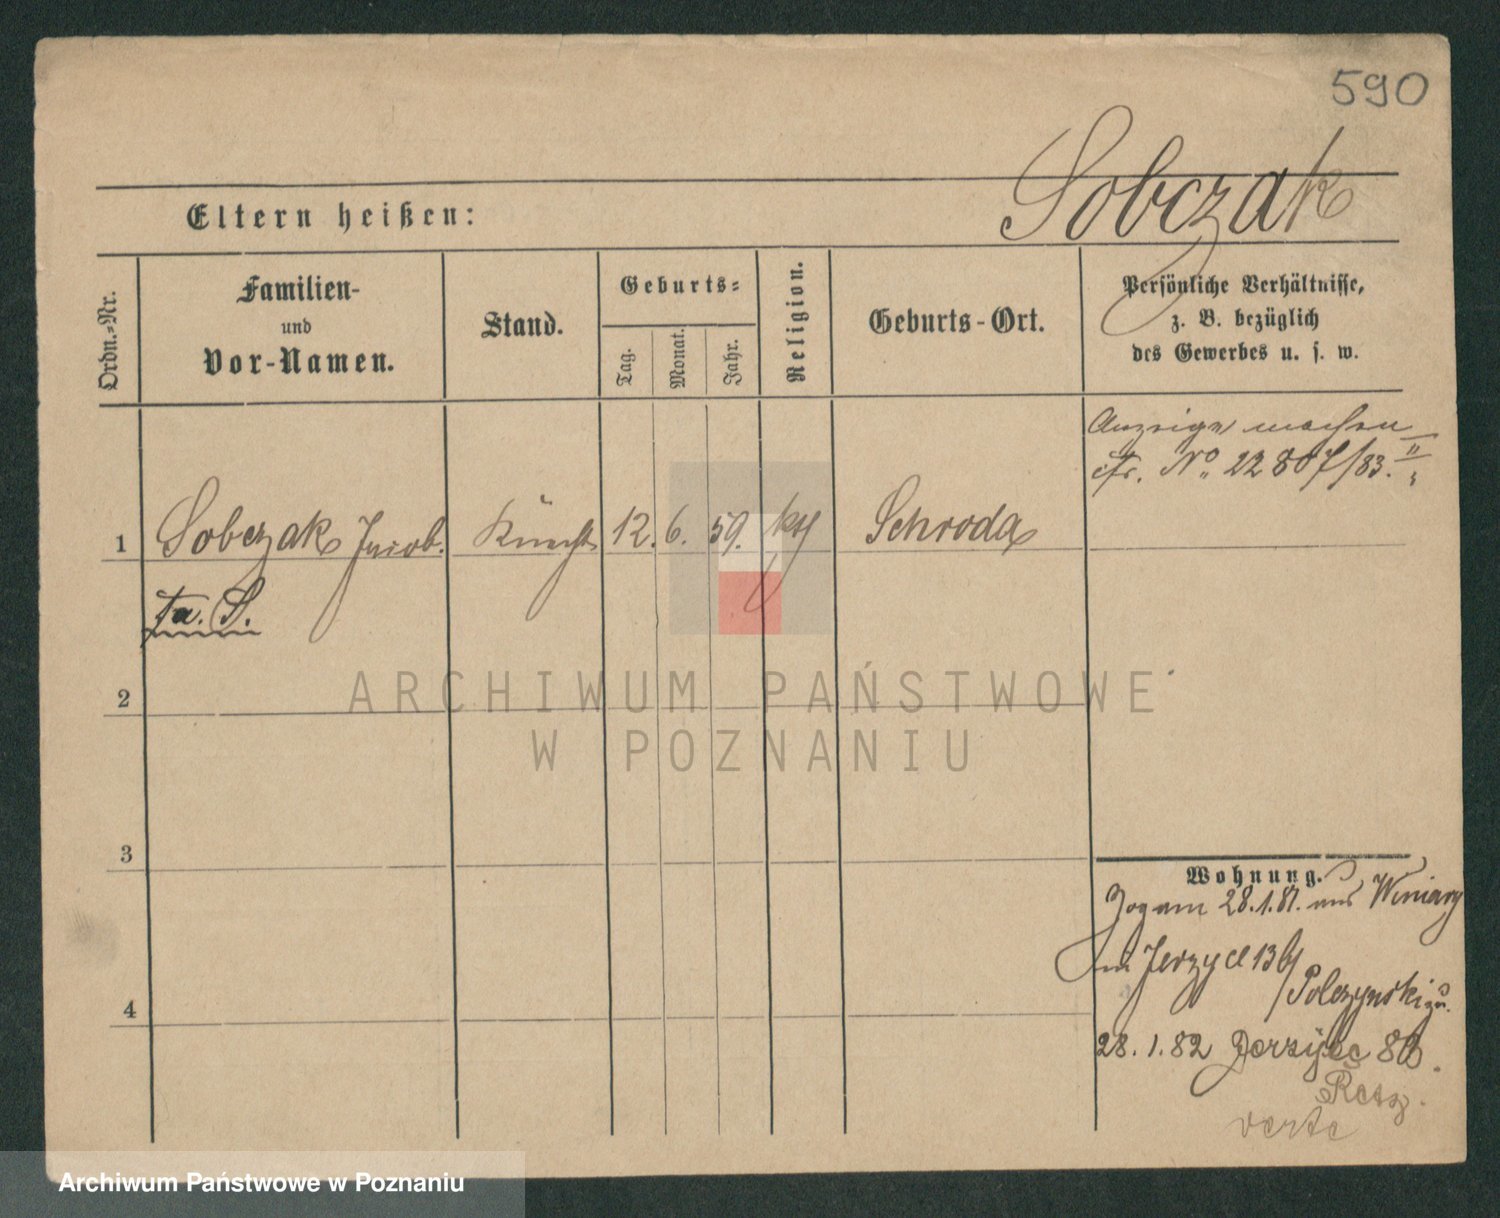 590
Sobczak
Eltern heißen:
Ordn.-Nr.
Familien-
und
Vor-Namen.
Stand.
Geburts-
Tag.
Monat.
Jahr.
Religion.
Geburts-Ort.
Persönliche Verhältnisse,
z. B. bezüglich
des Gewerbes u. s. w.
Anzeige machen
cfr. No. 22807/83. II
1 Sobczak Jacob. Knecht 12. 6. 59. kth Schroda
2
3
4
ARCHIWUM PAŃSTWOWE
W POZNANIU
Wohnung.
Zog am 28.1.81. aus Winiary
Jerzyce 13 b/
Polczynski
28.1.82 Jerzyce 8b.
verte
Archiwum Państwowe w Poznaniu